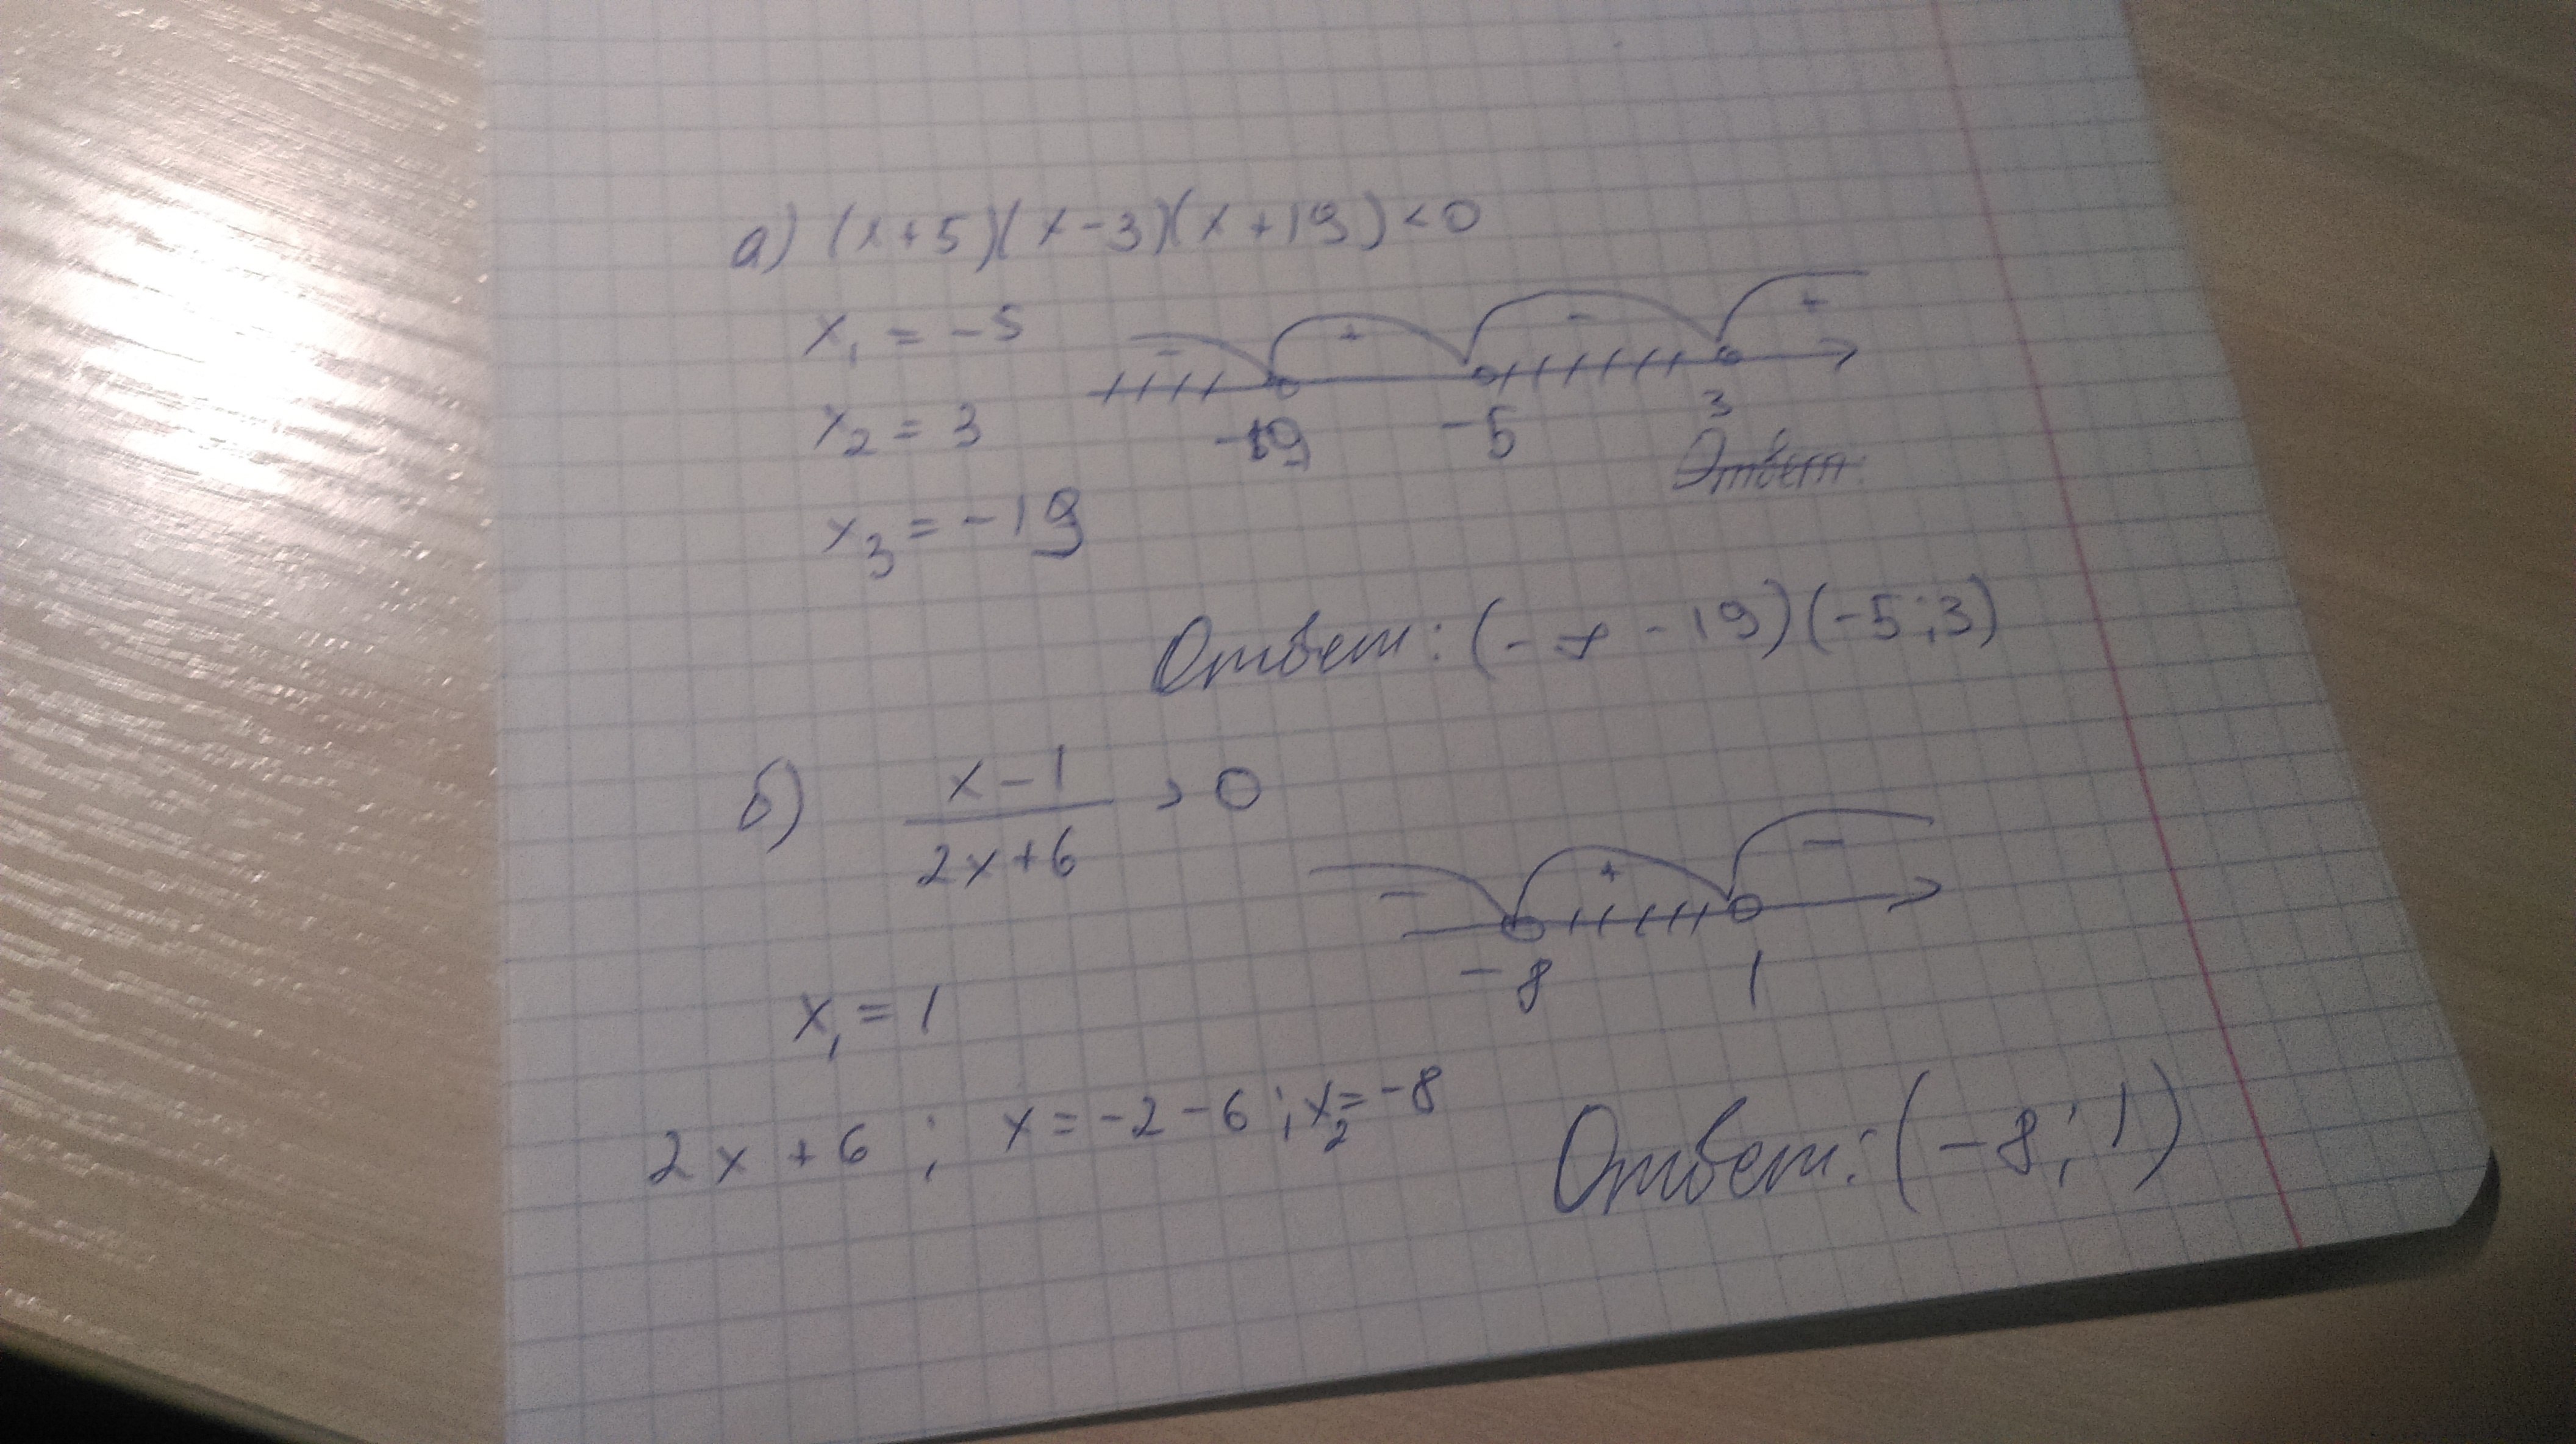 а) (x+5)(x-3)(x+19)<0
x₁ = -5
- + - +
x₂ = 3
-19 -5 3
Ответ:
x₃ = -19
Ответ: (-∞ -19)(-5;3)
б) x-1 / 2x+6 > 0
- + -
-8 1
x₁ = 1
2x+6 ; x = -2-6 ; x₂ = -8
Ответ: (-8; 1)